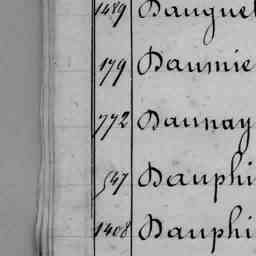 1489 Dauguet
179 Daumie
772 Daunay
547 Dauphi
1408 Dauphi